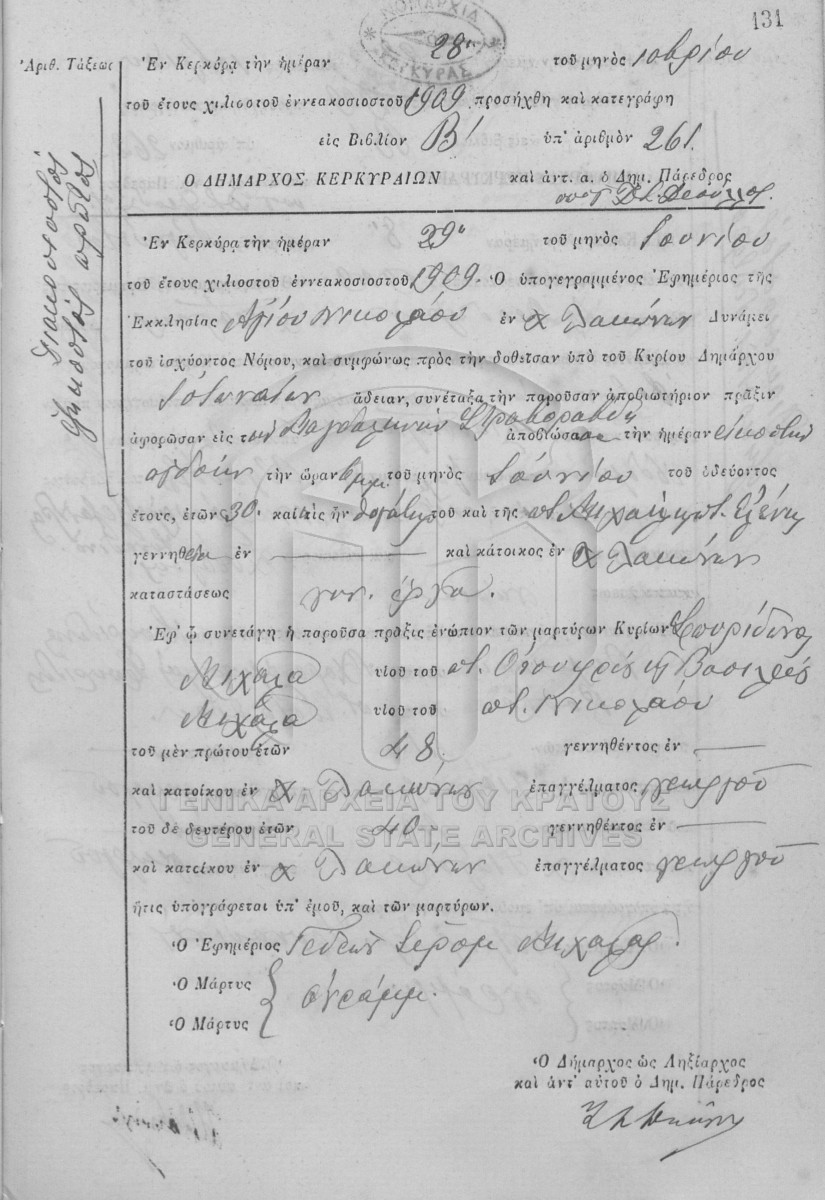 131
ΝΟΜΑΡΧΙΑ
ΚΕΡΚΥΡΑΣ
Ἀριθ. Τάξεως
διακοσιοστὸς
ἑξηκοστὸς πρῶτος
Ἐν Κερκύρᾳ τὴν ἡμέραν 28ην τοῦ μηνὸς
τοῦ ἔτους χιλιοστοῦ ἐννεακοσιοστοῦ 1909 προσήχθη καὶ κατεγράφη
εἰς Βιβλίον Β' ὑπ' ἀριθμὸν 261.
Ο ΔΗΜΑΡΧΟΣ ΚΕΡΚΥΡΑΙΩΝ καὶ ἀντ. α. ὁ Δημ. Πάρεδρος
Ἐν Κερκύρᾳ τὴν ἡμέραν 29 τοῦ μηνὸς Ἰουνίου
τοῦ ἔτους χιλιοστοῦ ἐννεακοσιοστοῦ 1909. Ὁ ὑπογεγραμμένος Ἐφημέριος τῆς
Ἐκκλησίας Ἁγίου Νικολάου ἐν χ Λακώνων Δυνάμει
τοῦ ἰσχύοντος Νόμου, καὶ συμφώνως πρὸς τὴν δοθεῖσαν ὑπὸ τοῦ Κυρίου Δημάρχου
ἄδειαν, συνέταξα τὴν παροῦσαν ἀποβιωτήριον πρᾶξιν
ἀφορῶσαν εἰς τὴν ἀποβιώσασαν τὴν ἡμέραν εἰκοστὴν
ὀγδόην τὴν ὥραν 6 μ.μ. τοῦ μηνὸς Ἰουνίου τοῦ ὁδεύοντος
ἔτους, ἐτῶν 30. καὶ τις ἦν θυγάτηρ τοῦ καὶ τῆς ποτ. Μιχαὴλ ποτ. Ἑλένης
γεννηθεῖσα ἐν — καὶ κάτοικος ἐν χ Λακώνων
καταστάσεως γυν. ἐργα.
Ἐφ' ᾧ συνετάγη ἡ παροῦσα πρᾶξις ἐνώπιον τῶν μαρτύρων Κυρίων Σπυρίδωνος
Μιχαλα υἱοῦ τοῦ ποτ. Ὀνουφρίο κ Βασιλείο
Μιχαλα υἱοῦ τοῦ ποτ. Νικολάου
τοῦ μὲν πρώτου ἐτῶν 48. γεννηθέντος ἐν —
καὶ κατοίκου ἐν χ Λακώνων ἐπαγγέλματος γεωργοῦ
ΓΕΝΙΚΑ ΑΡΧΕΙΑ ΤΟΥ ΚΡΑΤΟΥΣ
τοῦ δὲ δευτέρου ἐτῶν 40 γεννηθέντος ἐν —
GENERAL STATE ARCHIVES
καὶ κατοίκου ἐν χ Λακώνων ἐπαγγέλματος γεωργοῦ
ἥτις ὑπογράφεται ὑπ' ἐμοῦ, καὶ τῶν μαρτύρων.
Ὁ Ἐφημέριος Γεδεὼν Ἱερομ Μιχαλας.
Ὁ Μάρτυς
ἀγράμμ.
Ὁ Μάρτυς
Ὁ Δήμαρχος ὡς Ληξίαρχος
καὶ ἀντ' αὐτοῦ ὁ Δημ. Πάρεδρος